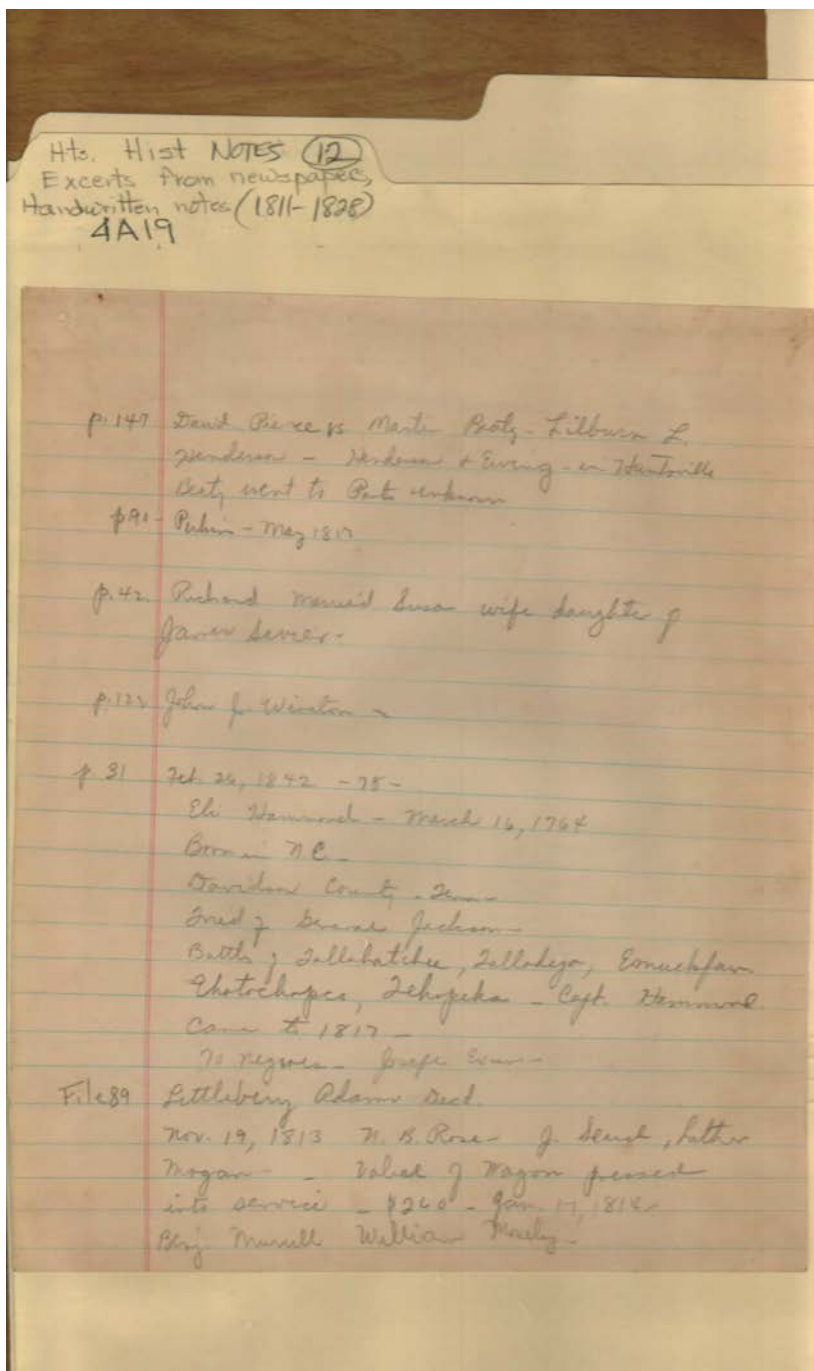 Hts. Hist NOTES (12)
Excerts from newspaper,
Handwritten notes (1811-1828)
4A19
p. 147 David Pierce vs Martin Beaty - Lilburn L.
Henderson - Henderson & Ewing - in Huntsville
Beaty went to Parts unknown
p 90 - Perkins - May 1817
p. 42. Richard married Susan wife daughter of
James Sevier -
p. 122 John J. Winston -
p 31 Feb. 26, 1842 - 75 -
Eli Hammond - March 16, 1764
Born in N.C. -
Davidson County - Tenn -
Friend of General Jackson -
Battle of Tallahatchee, Talladega, Emuckfaw
Tehopeka - Capt. Hammond.
Came to 1817 -
70 negroes -
File 89 Littleberry Adams Decd.
Nov. 19, 1813 N. B. Rose - J. , Luther
Mogan - - Value of Wagon pressed
into service - $260 - Jan. 17, 1814 -
Benj Murrell William Mosely -